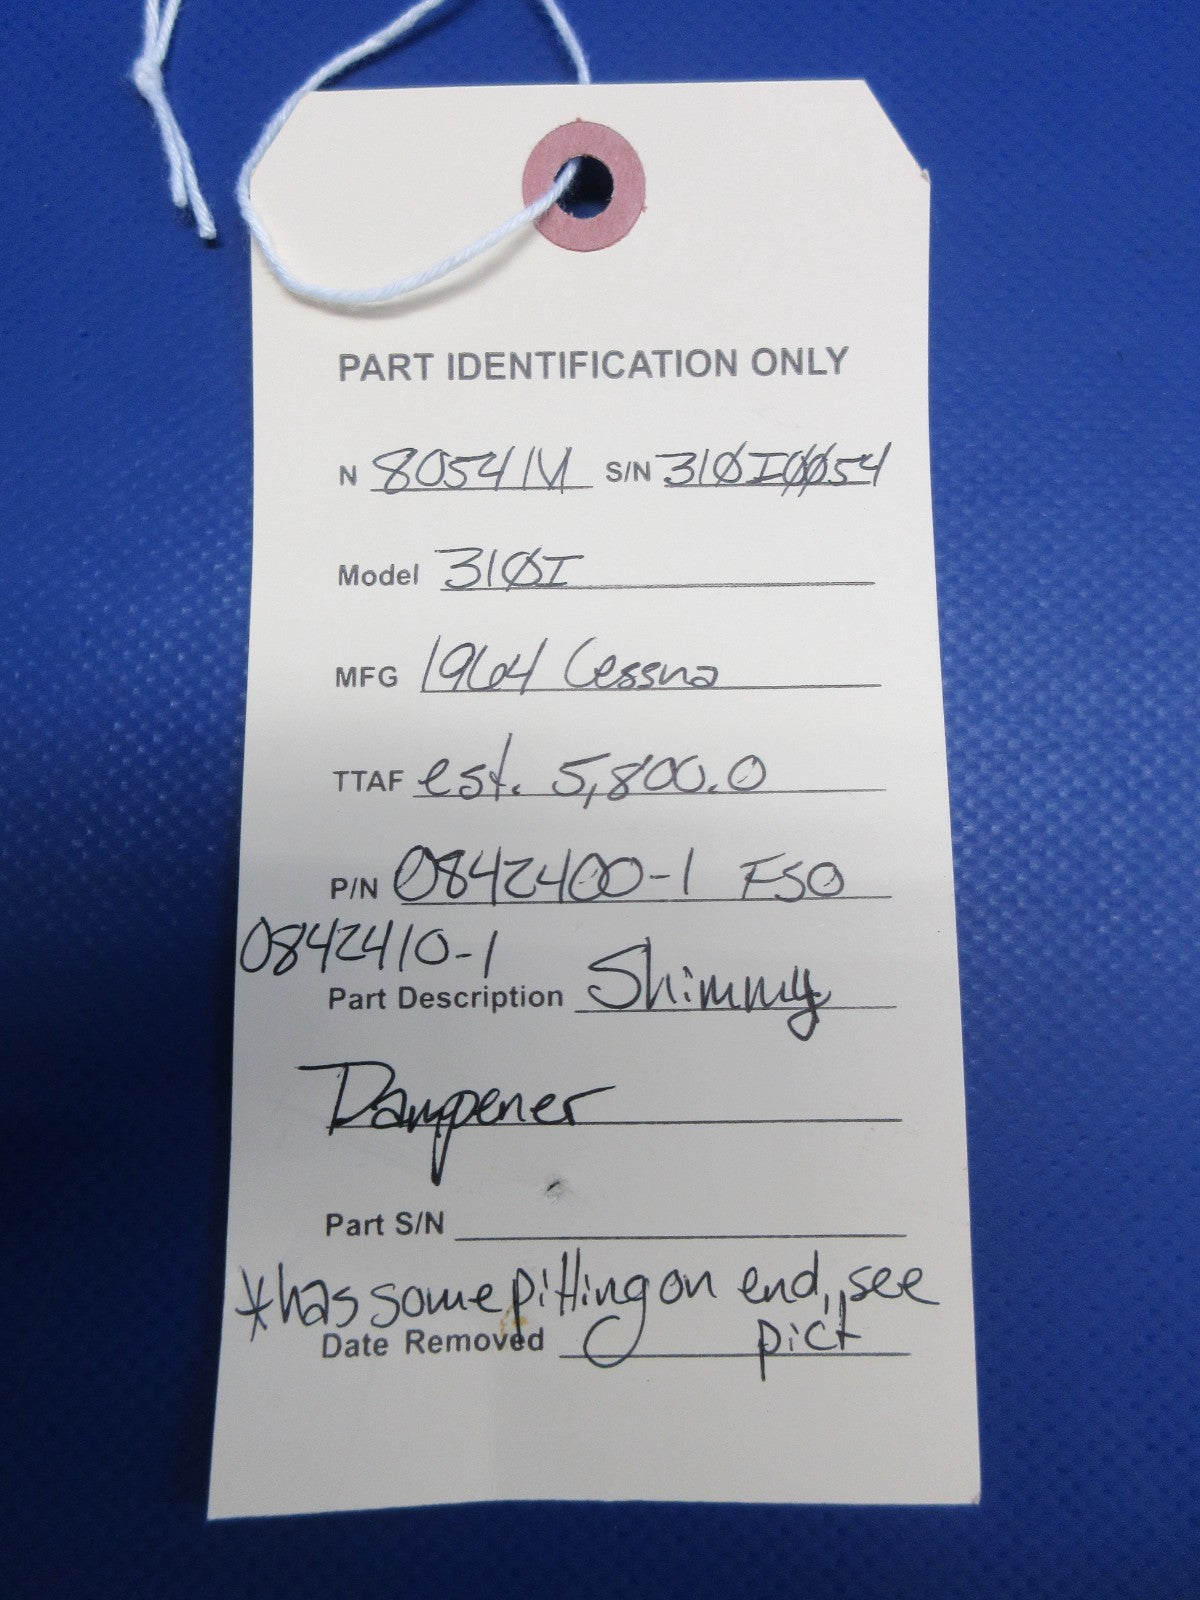 PART IDENTIFICATION ONLY
N 8054 M S/N 310I0054
Model 310I
MFG 1964 Cessna
TTAF est. 5,800.0
P/N 0842400-1 FSO
0842410-1
Part Description Shimmy
Dampener
Part S/N
*has some pitting on end, see
pict
Date Removed